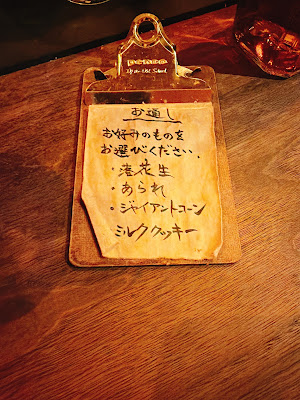 お通し
お好みのものを
お選びください.
・落花生
・あられ
・ジャイアントコーン
ミルククッキー